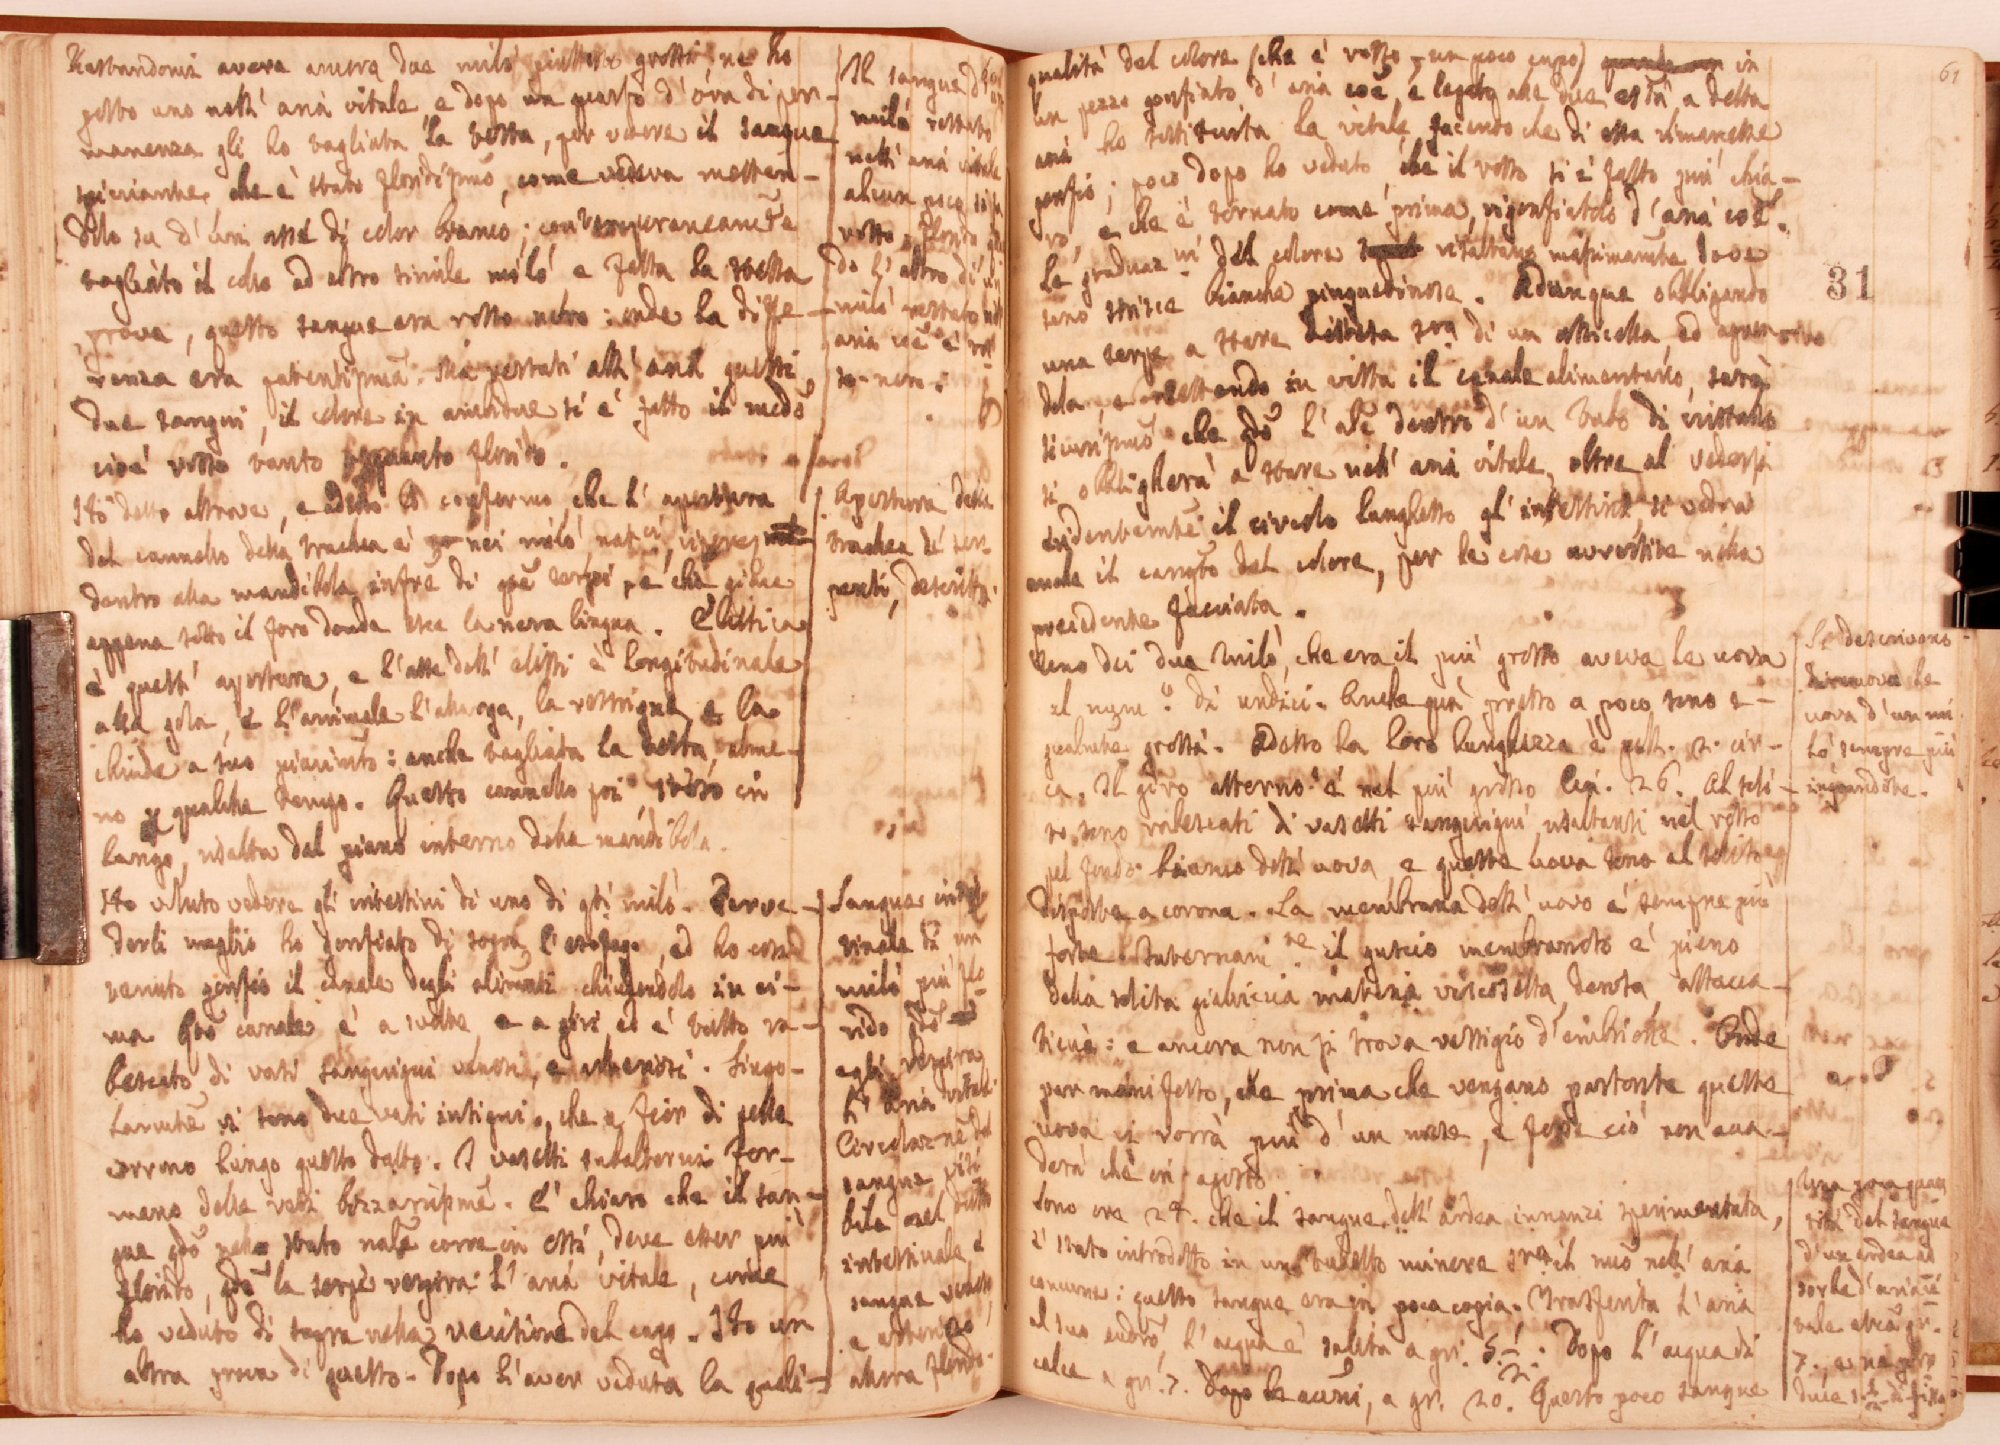 Restandomi avere ancora due milò piuttosto grossi, ne ho
posto uno nell' aria vitale, e dopo un quarto d'ora di per-
manenza gli ho tagliata la testa, per vedere il sangue
spicciante, che è stato floridissmo, come vedeva metten-
dolo su d' un asse di color bianco; contemporaneamte
tagliato il collo ad altro simile milò, e fatta la stessa
prova, questo sangue era rosso nero: onde la diffe-
renza era patentissima. Ma restati all' aria questi
due sangui, il colore in amendue si è fatto il medo
cioè rosso tanto quanto florido.
Ho detto altrove, e adesso lo confermo, che l' apertura
del cannello della trachea è nei milò, nat.ci, vipere
dentro alla mandibola infre di qte serpi, e che giace
appena sotto il foro donde esce la nera lingua. Elittica
è quest' apertura, e l'asse dell' elissi è longitudinale
alla gola, e l' animale l'allarga, la ristringe, e la
chiude a suo piacimto: anche tagliata la testa, alme-
no p qualche tempo. Questo cannello poi, steso in
lungo, risalta dal piano interno della mandibola.
Ho voluto vedere gli intestini di uno di qti milò. Per ve-
derli meglio ho gonfiato di sopra l'esofago, ed ho così
tenuto gonfio il canale degli alimenti chiudendolo in ci-
ma. Qto canale è a svolte e a giri, ed è tutto ra-
bescato di vasi sanguigni venosi, e arteriosi. Singo-
larmte vi sono due vasi insigni, che a fior di pelle
corrono lungo questo dutto. I vasetti subalterni for-
mano delle reti bizzarrissme. È chiaro che il san-
gue qdo nello stato nale corre in essi, deve esser più
florido, qdo la serpe respira l' aria vitale, come
ho veduto di sopra nella recisione del capo. Ho un
altra prova di questo. Dopo l'aver veduta la quali-
Il sangue d'un
milò restato
nell' aria vitale
alcun poco si fa
rosso florido,
l'altro di un
milò restato nell'
aria coe è ros-
so-nero.
Apertura della
trachea di ser-
penti, descritta.
Sangue inte-
stinale di un
milò più flo-
rido qdo
egli respira
l' aria vitale
Circolazne del
sangue visi-
bile nel dutto
intestinale, e
sangue venoso
e arterioso
allora florido.
61
31
qualità del colore (che è rosso-un poco cupo) in
un pezzo gonfiato d' aria coe, e legato alle due està, a detta
aria ho sostituita la vitale, facendo che di essa rimanesse
gonfio; poco dopo ho veduto che il rosso si è fatto più chia-
ro, e che è tornato come prima, rigonfiatolo d' aria coe.
Le graduaz.ni del colore risaltano massimamte dove
sono strisce bianche pinguedinose. Adunque obbligando
una serpe a stare distesa sop di un assicella, ed apren-
dola, e restando in vista il canale alimentario, sarà
sicurissmo che qdo l' asse dentro d' un tubo di cristallo
si obbligherà a stare nell' aria vitale, oltre al vedersi
evidentemte il circolo lunghesso gl' intestini, si vedrà
anche il cangto del colore, per le cose avvertite nella
precedente facciata.
Uno dei due milò, che era il più grosso aveva le uova
al num.o di undici. Anche più presto a poco sono e-
gualmte grossi. Adesso la loro lunghezza è poll. 2. cir-
ca. Il giro attorno è nel più grosso lin. 26. Al soli-
to sono rabescati di vasetti sanguigni risaltanti nel rosso
pel fondo bianco dell' uova, e queste uova sono al solito
disposte a corona. La membrana dell' uovo è sempre più
forte. Internam.te il guscio membranoso è pieno
della solita gialliccia materia viscosetta, densa, attacca-
ticcia: e ancora non si trova vestigio d' embrione. Onde
par manifesto, che prima che vengano partorite queste
uova ci vorrà più d' un mese, e forse ciò non acca-
derà che in agosto.
Sono ore 24. che il sangue dell' ardea innanzi sperimentata,
è stato introdotto in un tubetto minore sopra il mco nell' aria
comune: questo sangue era in poca copia. Trasferita l' aria
al suo eudro, l' acqua è salita a gr. 5 ½. Dopo l' acqua di
calce a gr. 7. Dopo le acini, a gr. 20. Questo poco sangue
Si descrivono
di nuovo le
uova d'un mi-
lò, sempre più
ingrandite.
Una poca quan-
tità del sangue
d'un ardea as-
sorbe d'aria vi-
tale circa gr.
7., e ne pro-
duce